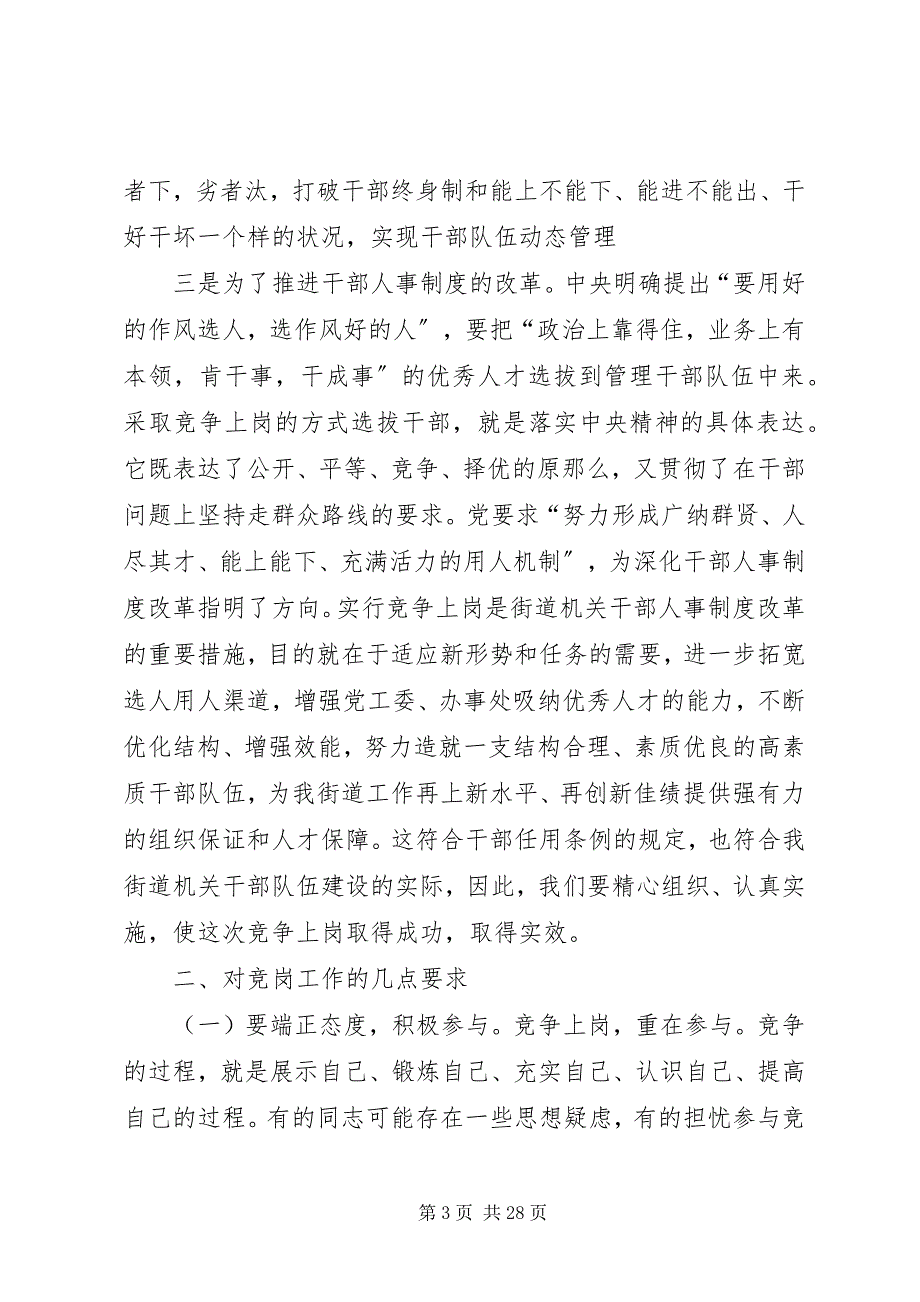 者下，劣者汰，打破干部终身制和能上不能下、能进不能出、干
好干坏一个样的状况，实现干部队伍动态管理
三是为了推进干部人事制度的改革。中央明确提出“要用好
的作风选人，选作风好的人〞，要把“政治上靠得住，业务上有
本领，肯干事，干成事〞的优秀人才选拔到管理干部队伍中来。
采取竞争上岗的方式选拔干部，就是落实中央精神的具体表达。
它既表达了公开、平等、竞争、择优的原那么，又贯彻了在干部
问题上坚持走群众路线的要求。党要求“努力形成广纳群贤、人
尽其才、能上能下、充满活力的用人机制〞，为深化干部人事制
度改革指明了方向。实行竞争上岗是街道机关干部人事制度改革
的重要措施，目的就在于适应新形势和任务的需要，进一步拓宽
选人用人渠道，增强党工委、办事处吸纳优秀人才的能力，不断
优化结构、增强效能，努力造就一支结构合理、素质优良的高素
质干部队伍，为我街道工作再上新水平、再创新佳绩提供强有力
的组织保证和人才保障。这符合干部任用条例的规定，也符合我
街道机关干部队伍建设的实际，因此，我们要精心组织、认真实
施，使这次竞争上岗取得成功，取得实效。
二、对竞岗工作的几点要求
（一）要端正态度，积极参与。竞争上岗，重在参与。竞争
的过程，就是展示自己、锻炼自己、充实自己、认识自己、提高
自己的过程。有的同志可能存在一些思想疑虑，有的担忧参与竞
第 3 页 共 28 页